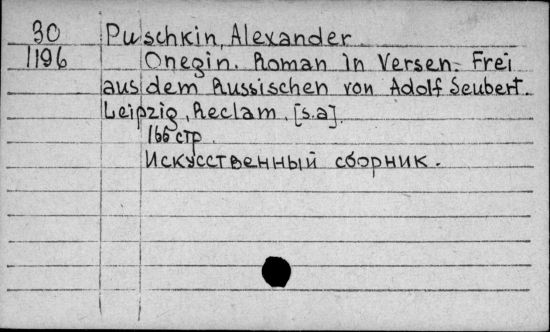 30 Puschkin, Alexander
1196 Onegin. Roman in Versen. Frei
aus dem Russischen von Adolf Seubert.
Leipzig, Reclam, [s.a].
166 стр.
Искусственный сборник.